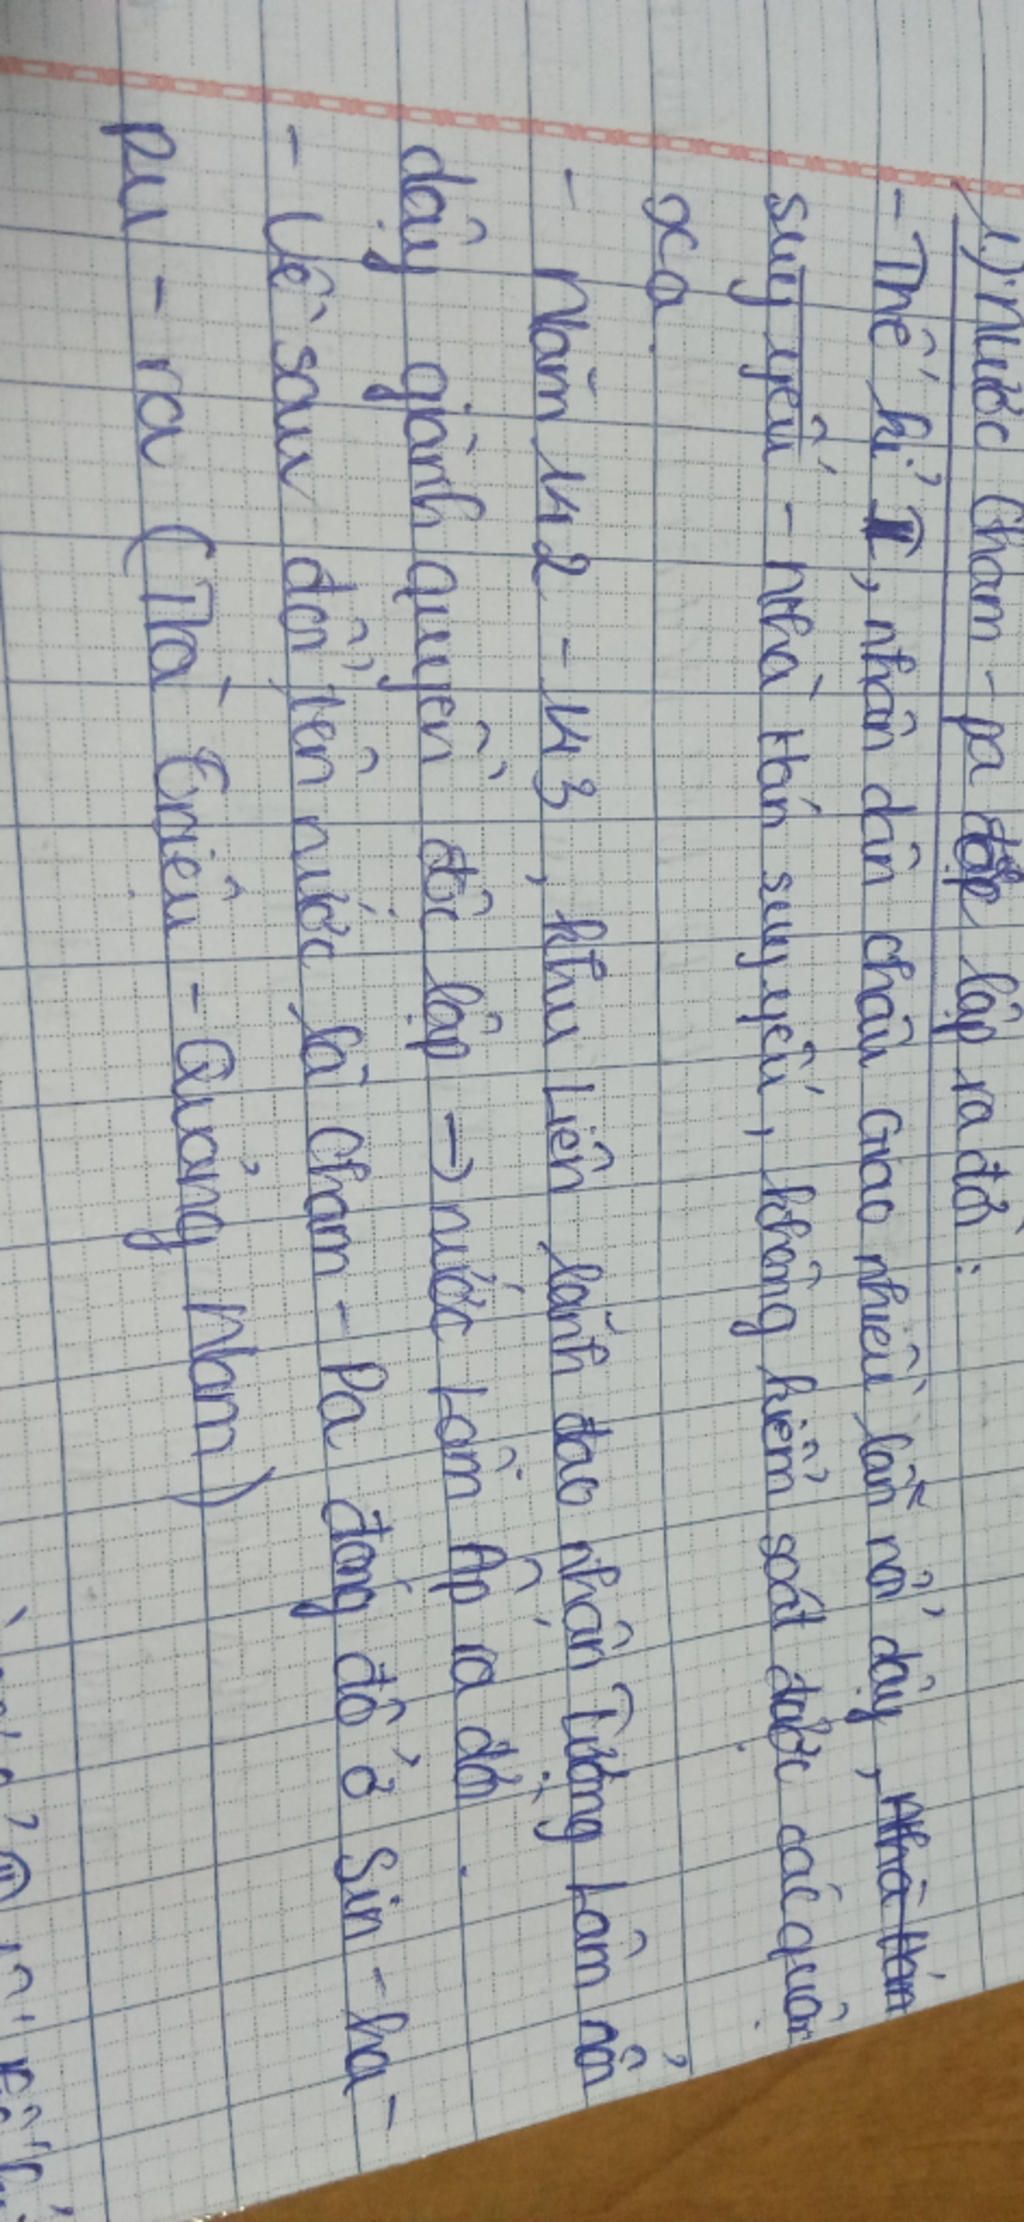 1.) Nước Cham-pa độc lập ra đời:
- Thế kỉ II, nhân dân châu Giao nhiều lần nổi dậy, Nhà Hán
suy yếu - nhà Hán suy yếu, không kiểm soát được các quận
xa.
- Năm 192 - 193, khu Liên lãnh đạo nhân Tượng Lâm nổi
dậy giành quyền độc lập → nước Lâm Ấp ra đời.
- Về sau đổi tên nước là Cham-Pa đóng đô ở Sin-ha-
pu-ra (Trà Kiệu - Quảng Nam)